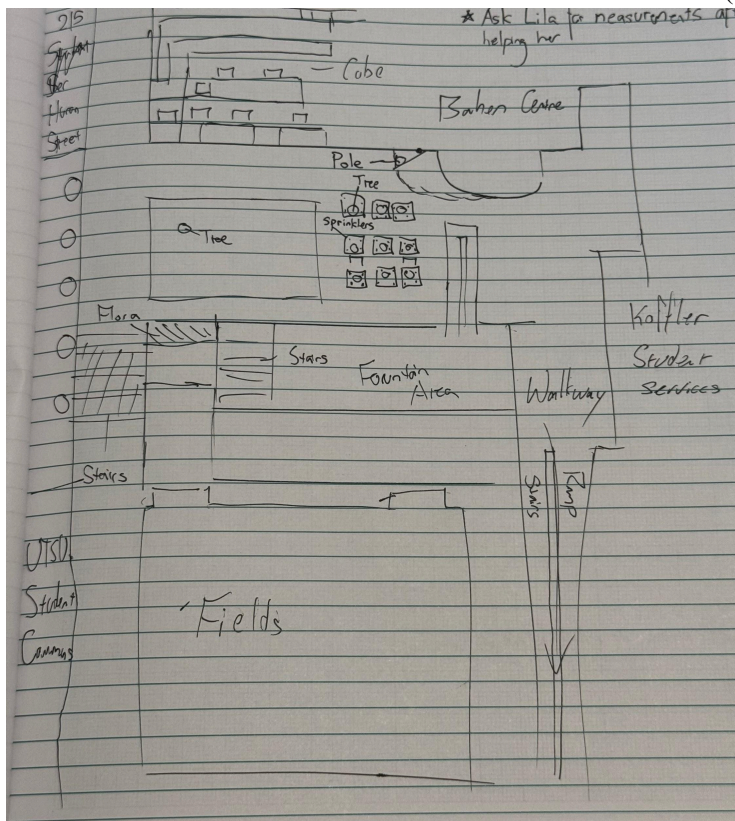 215
Huron
Street
* Ask Lila for measurements
helping her
Cube
Bahen Centre
Pole
Tree
Sprinklers
Tree
Flora
Stairs
Fountain
Area
Walkway
Koffler
Student
Services
Stairs
Stairs
Ramp
UTSU
Student
Commons
Fields